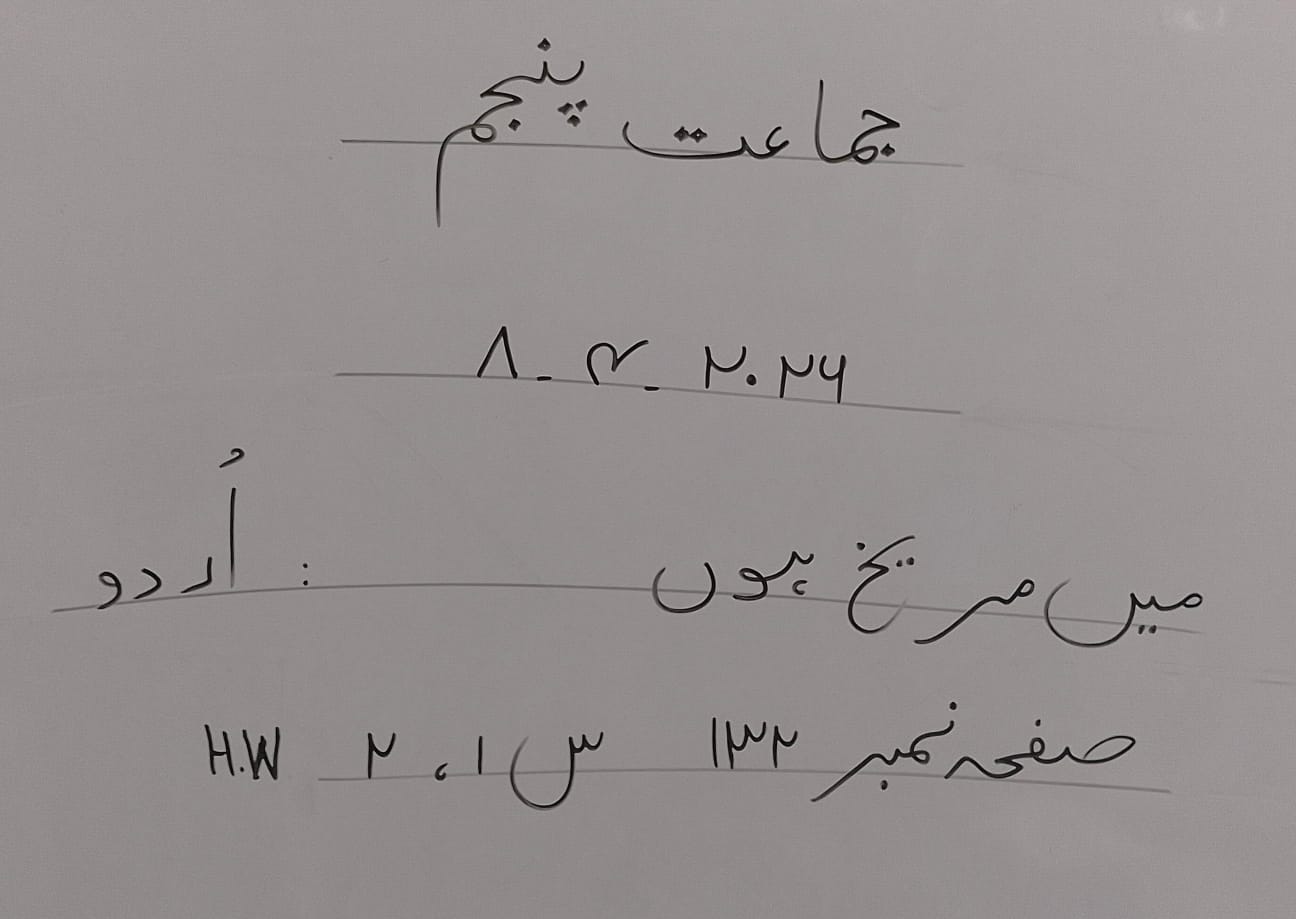 جماعت پنجم
۸-۴-۲۰۲۶
میں مریخ ہوں : اُردو
صفحہ نمبر ۱۳۲ س ۱، ۲ H.W